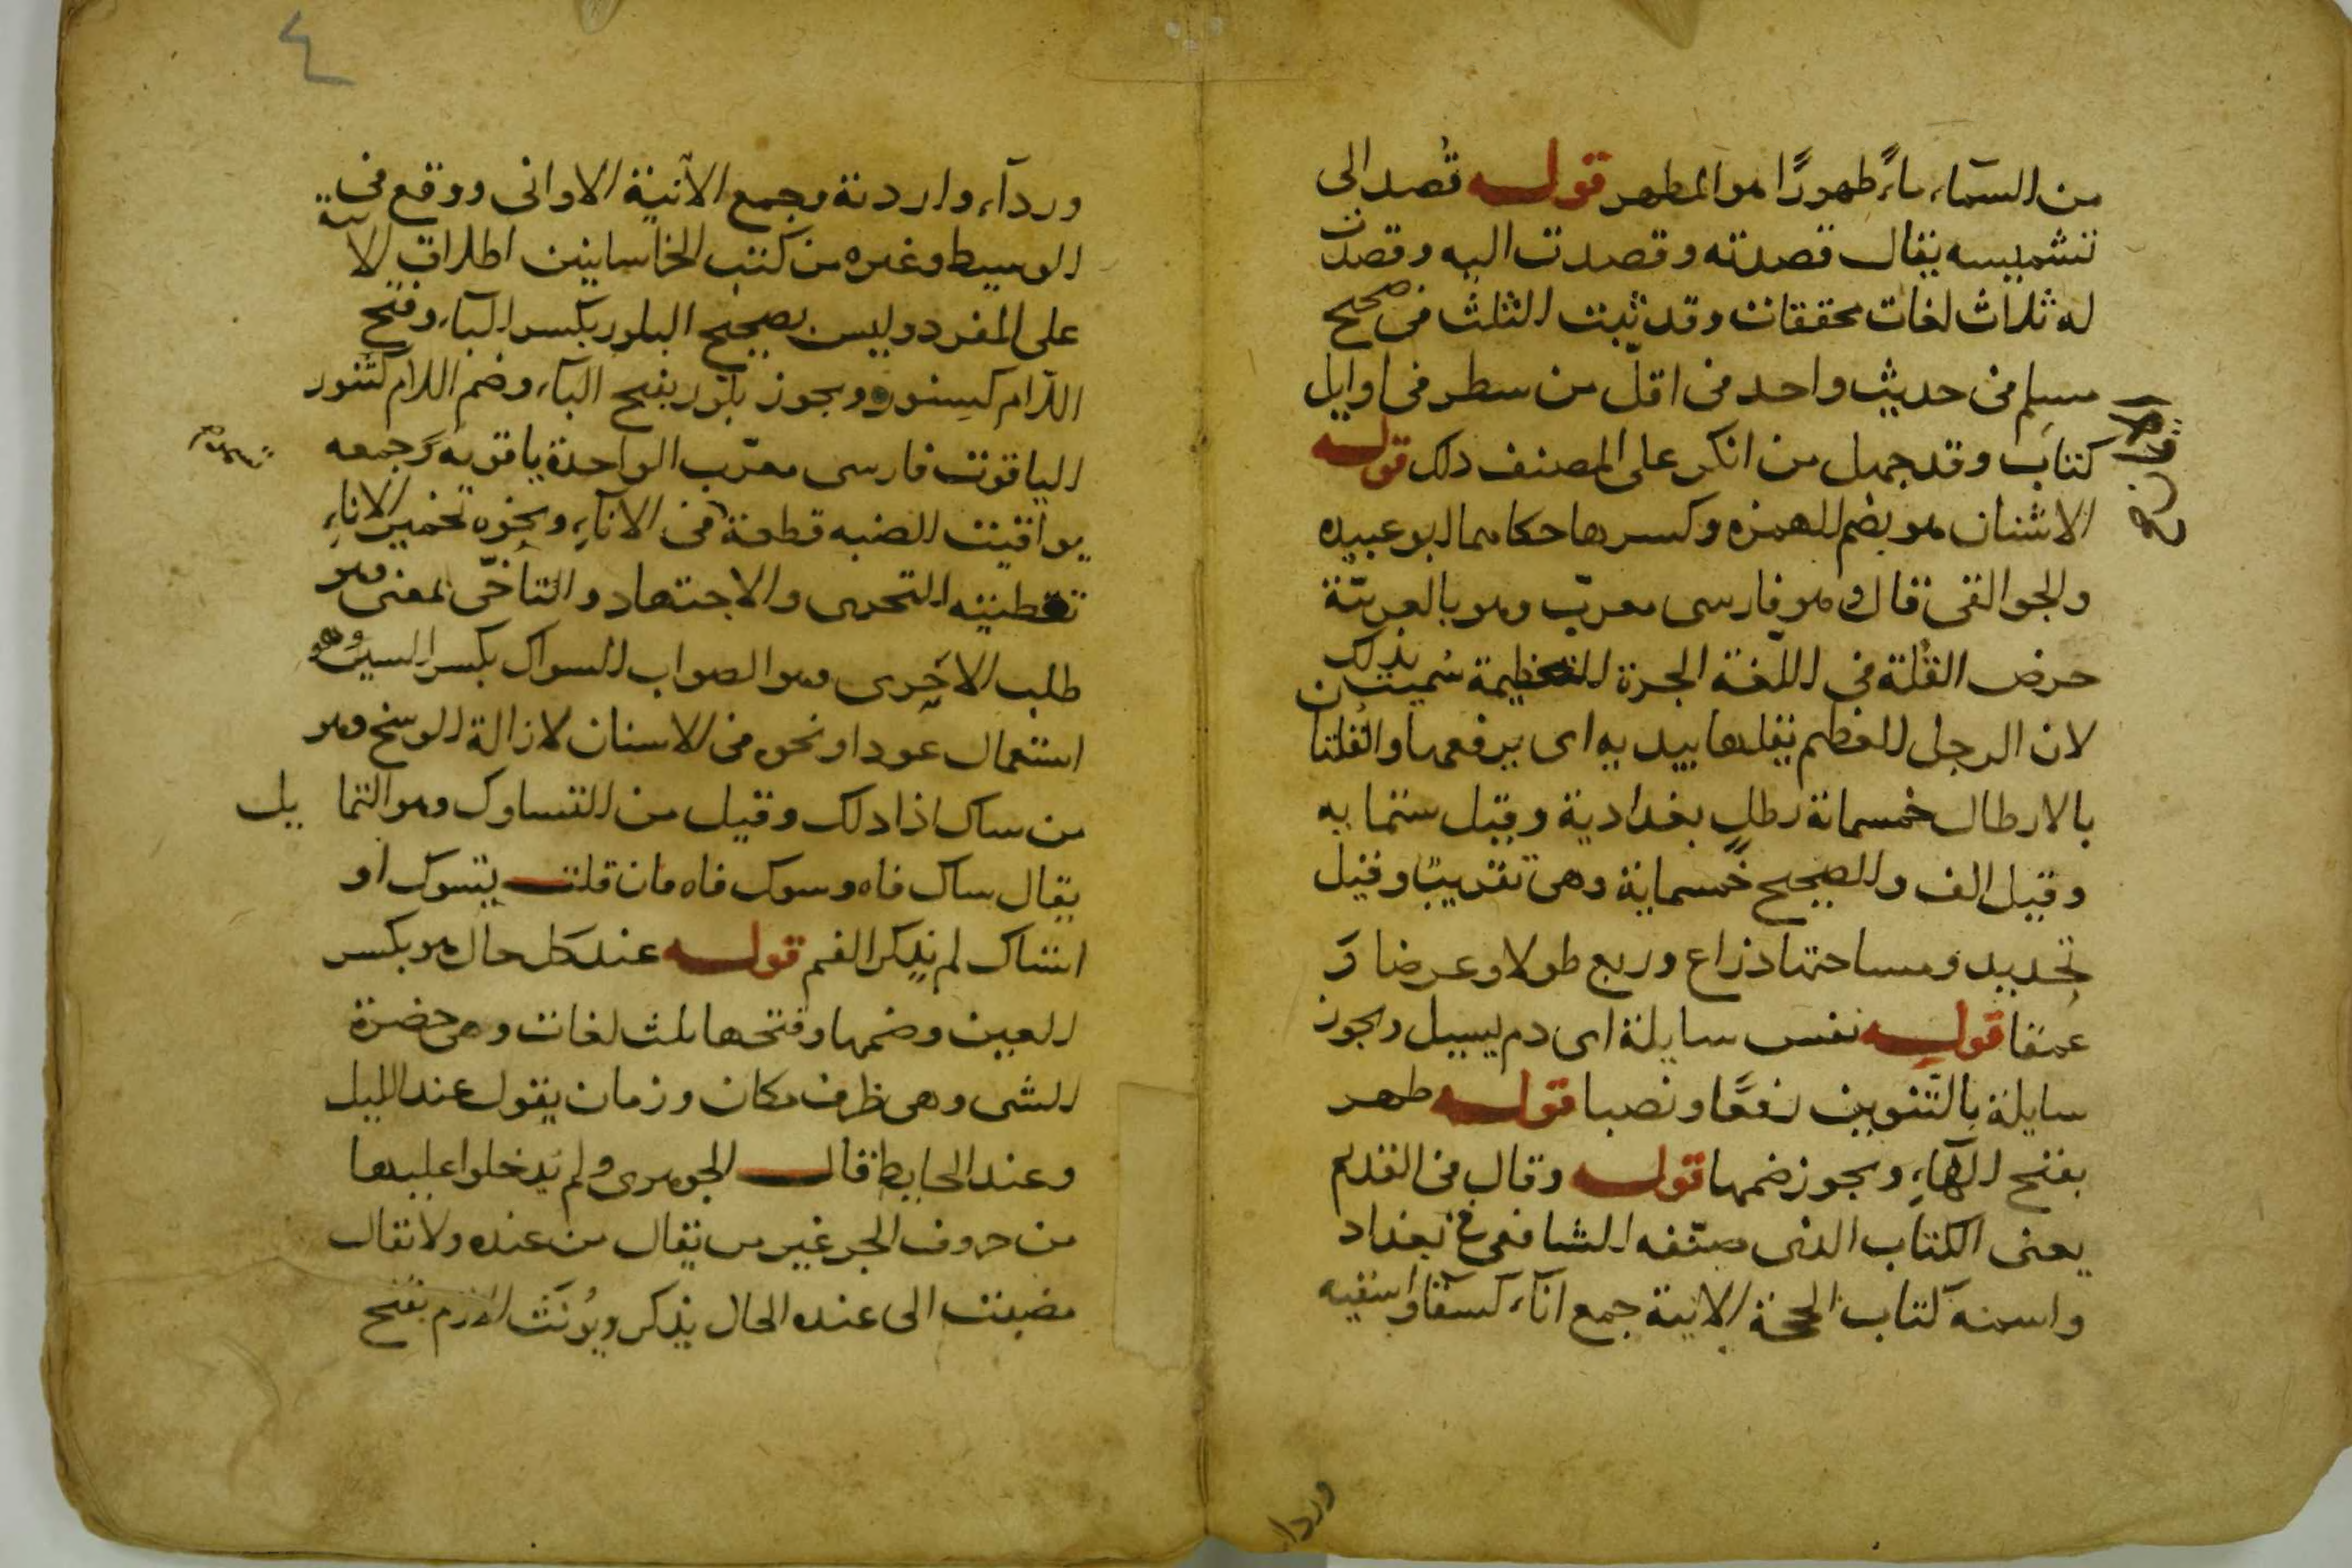 من السمآء مآءً طهورًا هو المطهر قوله قُصد الى
تشميسه يقال قصدته وقصدت اليه وقصدت
له ثلاث لغات محققات وقد ثبت الثلث فى صحيح
مسلم فى حديث واحد فى اقلّ من سطر فى اوايل
كتاب وقد جهل من انكر على المصنف ذلك قوله
الاشنان هو بضم الهمزه وكسرها حكاهما ابو عبيده
والجواليقى قال وهو فارسى معرّب وهو بالعربيّة
حرض القُلّة فى اللّغة الجرة العظيمة سُميت بذلك
لان الرجل العظيم يقلها بيديه اى يرفعها والقُلتان
بالارطال خمسمائة رطلٍ بغدادية وقيل ستمايه
وقيل الف والصحيح خمسماية وهى تقريبًا وقيل
تحديد ومساحتها ذراع وربع طولا وعرضا وَ
عمقا قوله نفس سايلة اى دم يسيل ويجوز
سايلة بالتّنوين رفعًا ونصبا قوله طهر
بفتح الهآءِ ويجوز ضمها قوله وقال فى القديم
يعنى الكتاب الذى صنّفه الشافعى ببغداد
واسمه كتاب الحجة الانية جمع انآء كسقآء واسقيه
وردا
وردآء واردية وجمع الآنية الاوانى ووقع فى
الوسيط وغيره من كتب الخراسانيين اطلاق الانية
على المفرد وليس بصحيح البلور بكسر البآء وفتح
اللّام كسِنور ويجوز بلّور بفتح البآء وضم اللام كتنور
الياقوت فارسى معرّب الواحدة ياقوته وجمعه
يواقيت الضبه قطعة فى الانآءِ ونحوه تخمير الاناءِ
تغطيته التحرى والاجتهاد والتأخّى بمعنى وهو
طلب الاحرى وهو الصواب السواك بكسر السين وهو
استعمال عود او نحوه فى الاسنان لازالة الوسخ وهو
من ساك اذا دلك وقيل من التساوك وهو التمايل
يقال ساك فاه وسوك فاه فان قلت يتسوك او
استاك لم يذكر الفم قوله عند كل حال هو بكسر
العين وضمها وفتحها ثلث لغات وهى حضرة
الشى وهى ظرف مكان وزمان يقول عند الليل
وعند الحايط قال الجوهرى ولم يُدخلوا عليها
من حروف الجر غير من يقال من عنده ولا يقال
مضيت الى عنده الحال يذكر ويُونّث الازم بفتح